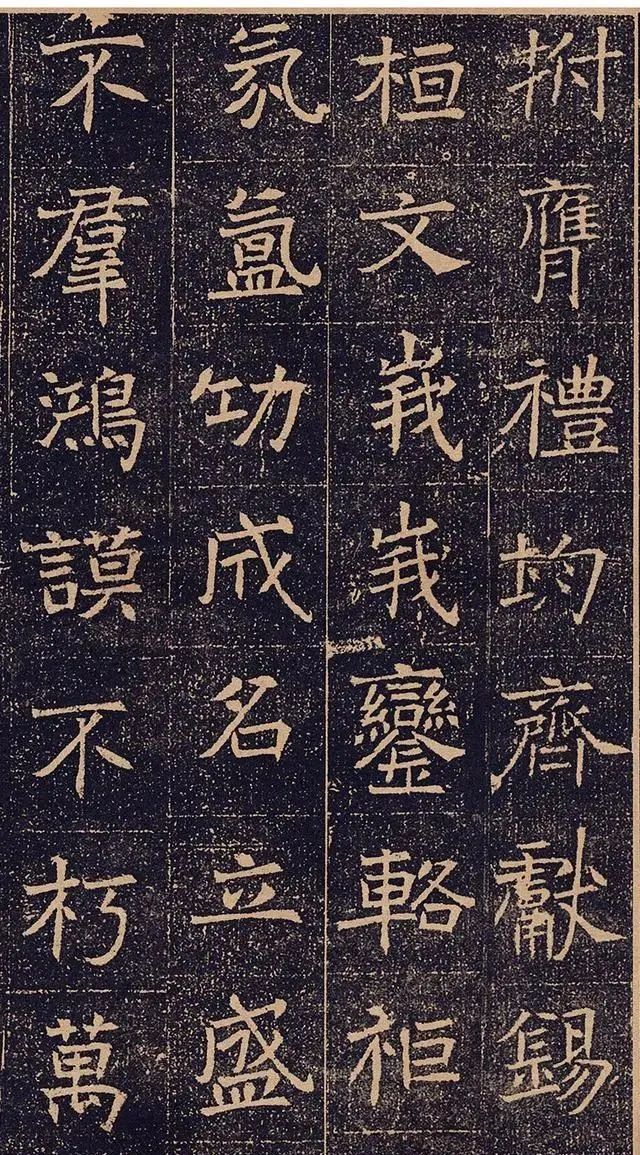 拊膺禮均齊獻錫
桓文峩峩鑾輅秬
氛氳功成名立盛
不羣鴻謨不朽萬